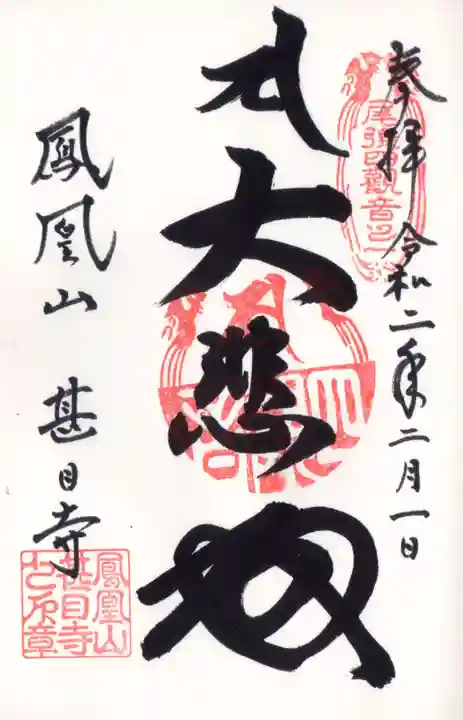 奉拝 令和二年二月一日
尾張四觀音
大悲殿
鳳凰山 甚目寺
鳳凰山
甚目寺
之印章